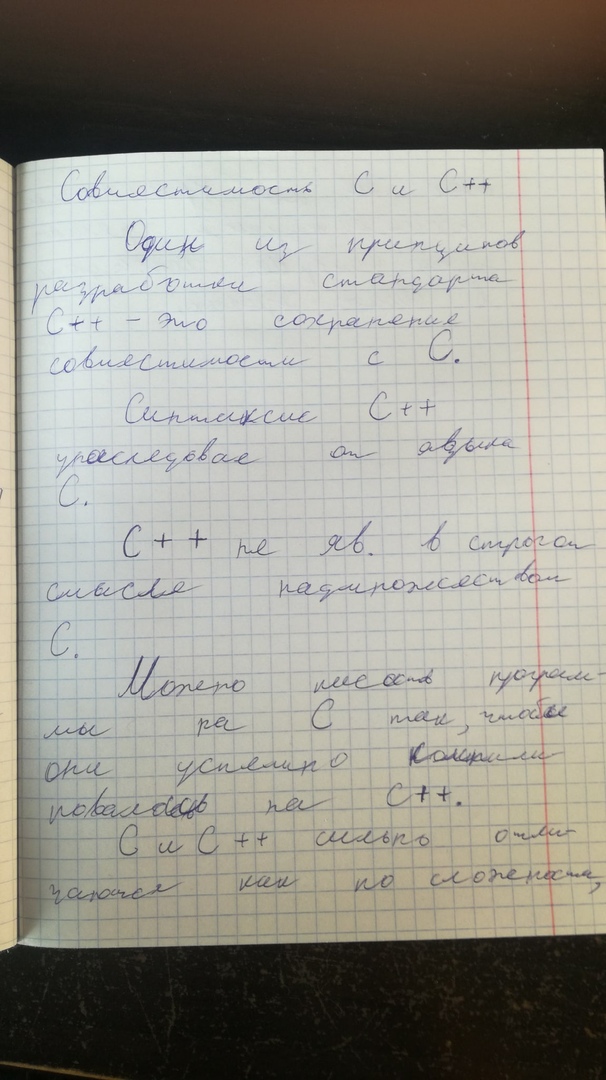 Совместимость С и С++
Один из принципов
разработки стандарта
С++ – это сохранение
совместимости с С.
Синтаксис С++
унаследован от языка
С.
С++ не яв. в строгом
смысле надмножеством
С.
Можно писать програм-
мы на С так, чтобы
они успешно компили-
ровались на С++.
С и С++ сильно отли-
чаются как по сложности,